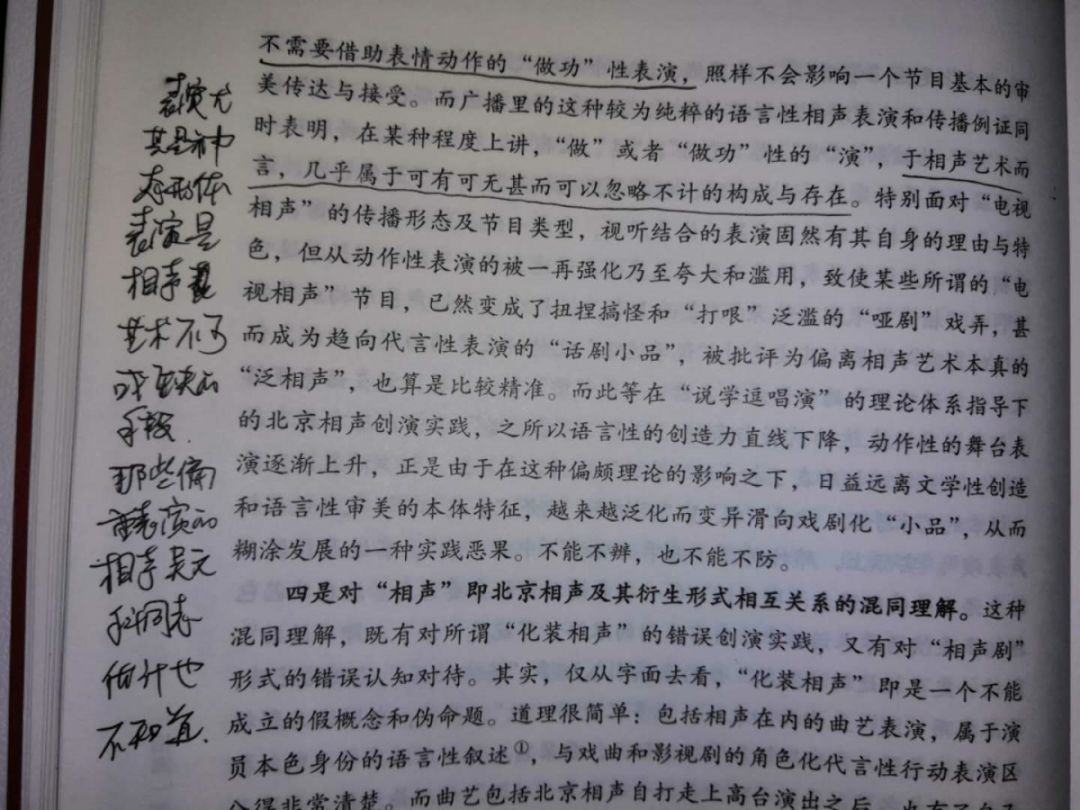 不需要借助表情动作的“做功”性表演，照样不会影响一个节目基本的审
美传达与接受。而广播里的这种较为纯粹的语言性相声表演和传播例证同
时表明，在某种程度上讲，“做”或者“做功”性的“演”，于相声艺术而
言，几乎属于可有可无甚而可以忽略不计的构成与存在。特别面对“电视
相声”的传播形态及节目类型，视听结合的表演固然有其自身的理由与特
色，但从动作性表演的被一再强化乃至夸大和滥用，致使某些所谓的“电
视相声”节目，已然变成了扭捏搞怪和“打哏”泛滥的“哑剧”戏弄，甚
而成为趋向代言性表演的“话剧小品”，被批评为偏离相声艺术本真的
“泛相声”，也算是比较精准。而此等在“说学逗唱演”的理论体系指导下
的北京相声创演实践，之所以语言性的创造力直线下降，动作性的舞台表
演逐渐上升，正是由于在这种偏颇理论的影响之下，日益远离文学性创造
和语言性审美的本体特征，越来越泛化而变异滑向戏剧化“小品”，从而
糊涂发展的一种实践恶果。不能不辨，也不能不防。
四是对“相声”即北京相声及其衍生形式相互关系的混同理解。这种
混同理解，既有对所谓“化装相声”的错误创演实践，又有对“相声剧”
形式的错误认知对待。其实，仅从字面去看，“化装相声”即是一个不能
成立的假概念和伪命题。道理很简单：包括相声在内的曲艺表演，属于演
员本色身份的语言性叙述①，与戏曲和影视剧的角色化代言性行动表演区
分得非常清楚。而曲艺包括北京相声自打走上高台演出之后，也有
表演尤
其是神
态形体
表演是
相声
艺术不可
或缺的
手段.
那些偏
重表演的
相声吴元
同志
估计也
不知道.